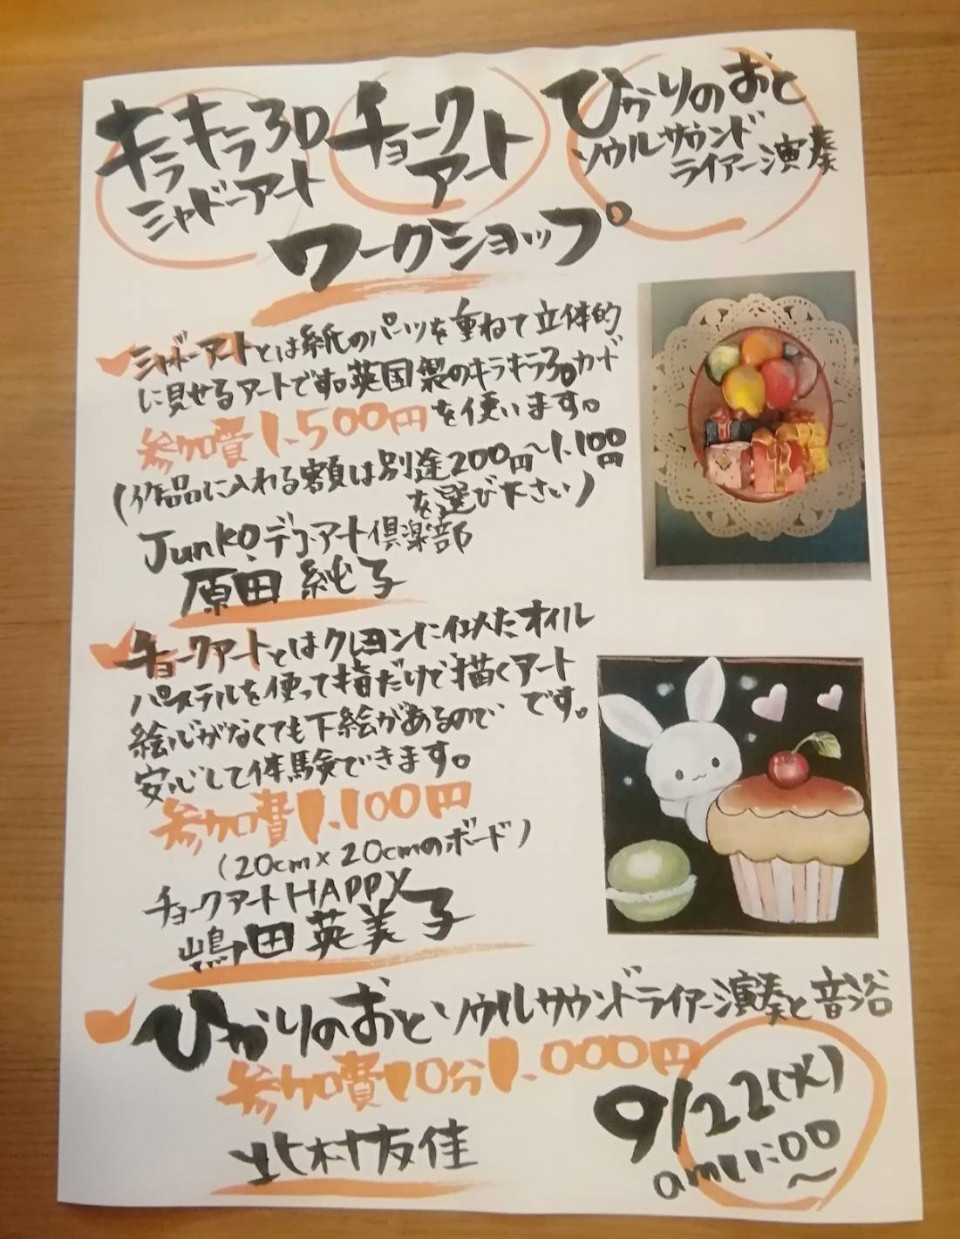 キラキラ3D
ミャドーアート
チョーク
アート
ひかりのおと
ソウルサウンド
ライアー演奏
ワークショップ
ミャドーアートとは紙のパーツを重ねて立体的
に見せるアートです。英国製のキラキラ3Dカード
参加費1,500円を使います。
(作品に入れる額は別途200円〜1,100円
を選び下さい)
Junko デコアート倶楽部
原田 純子
チョークアートとはクレヨンに似たオイル
パステルを使って指だけで描くアート
です。
絵心がなくても下絵があるので
安心して体験できます。
参加費1,100円
(20cm×20cmのボード)
チョークアートHAPPY
嶋田英美子
ひかりのおとソウルサウンドライアー演奏と音浴
参加費10分1,000円
北村友佳
9/22(火)
am11:00
〜